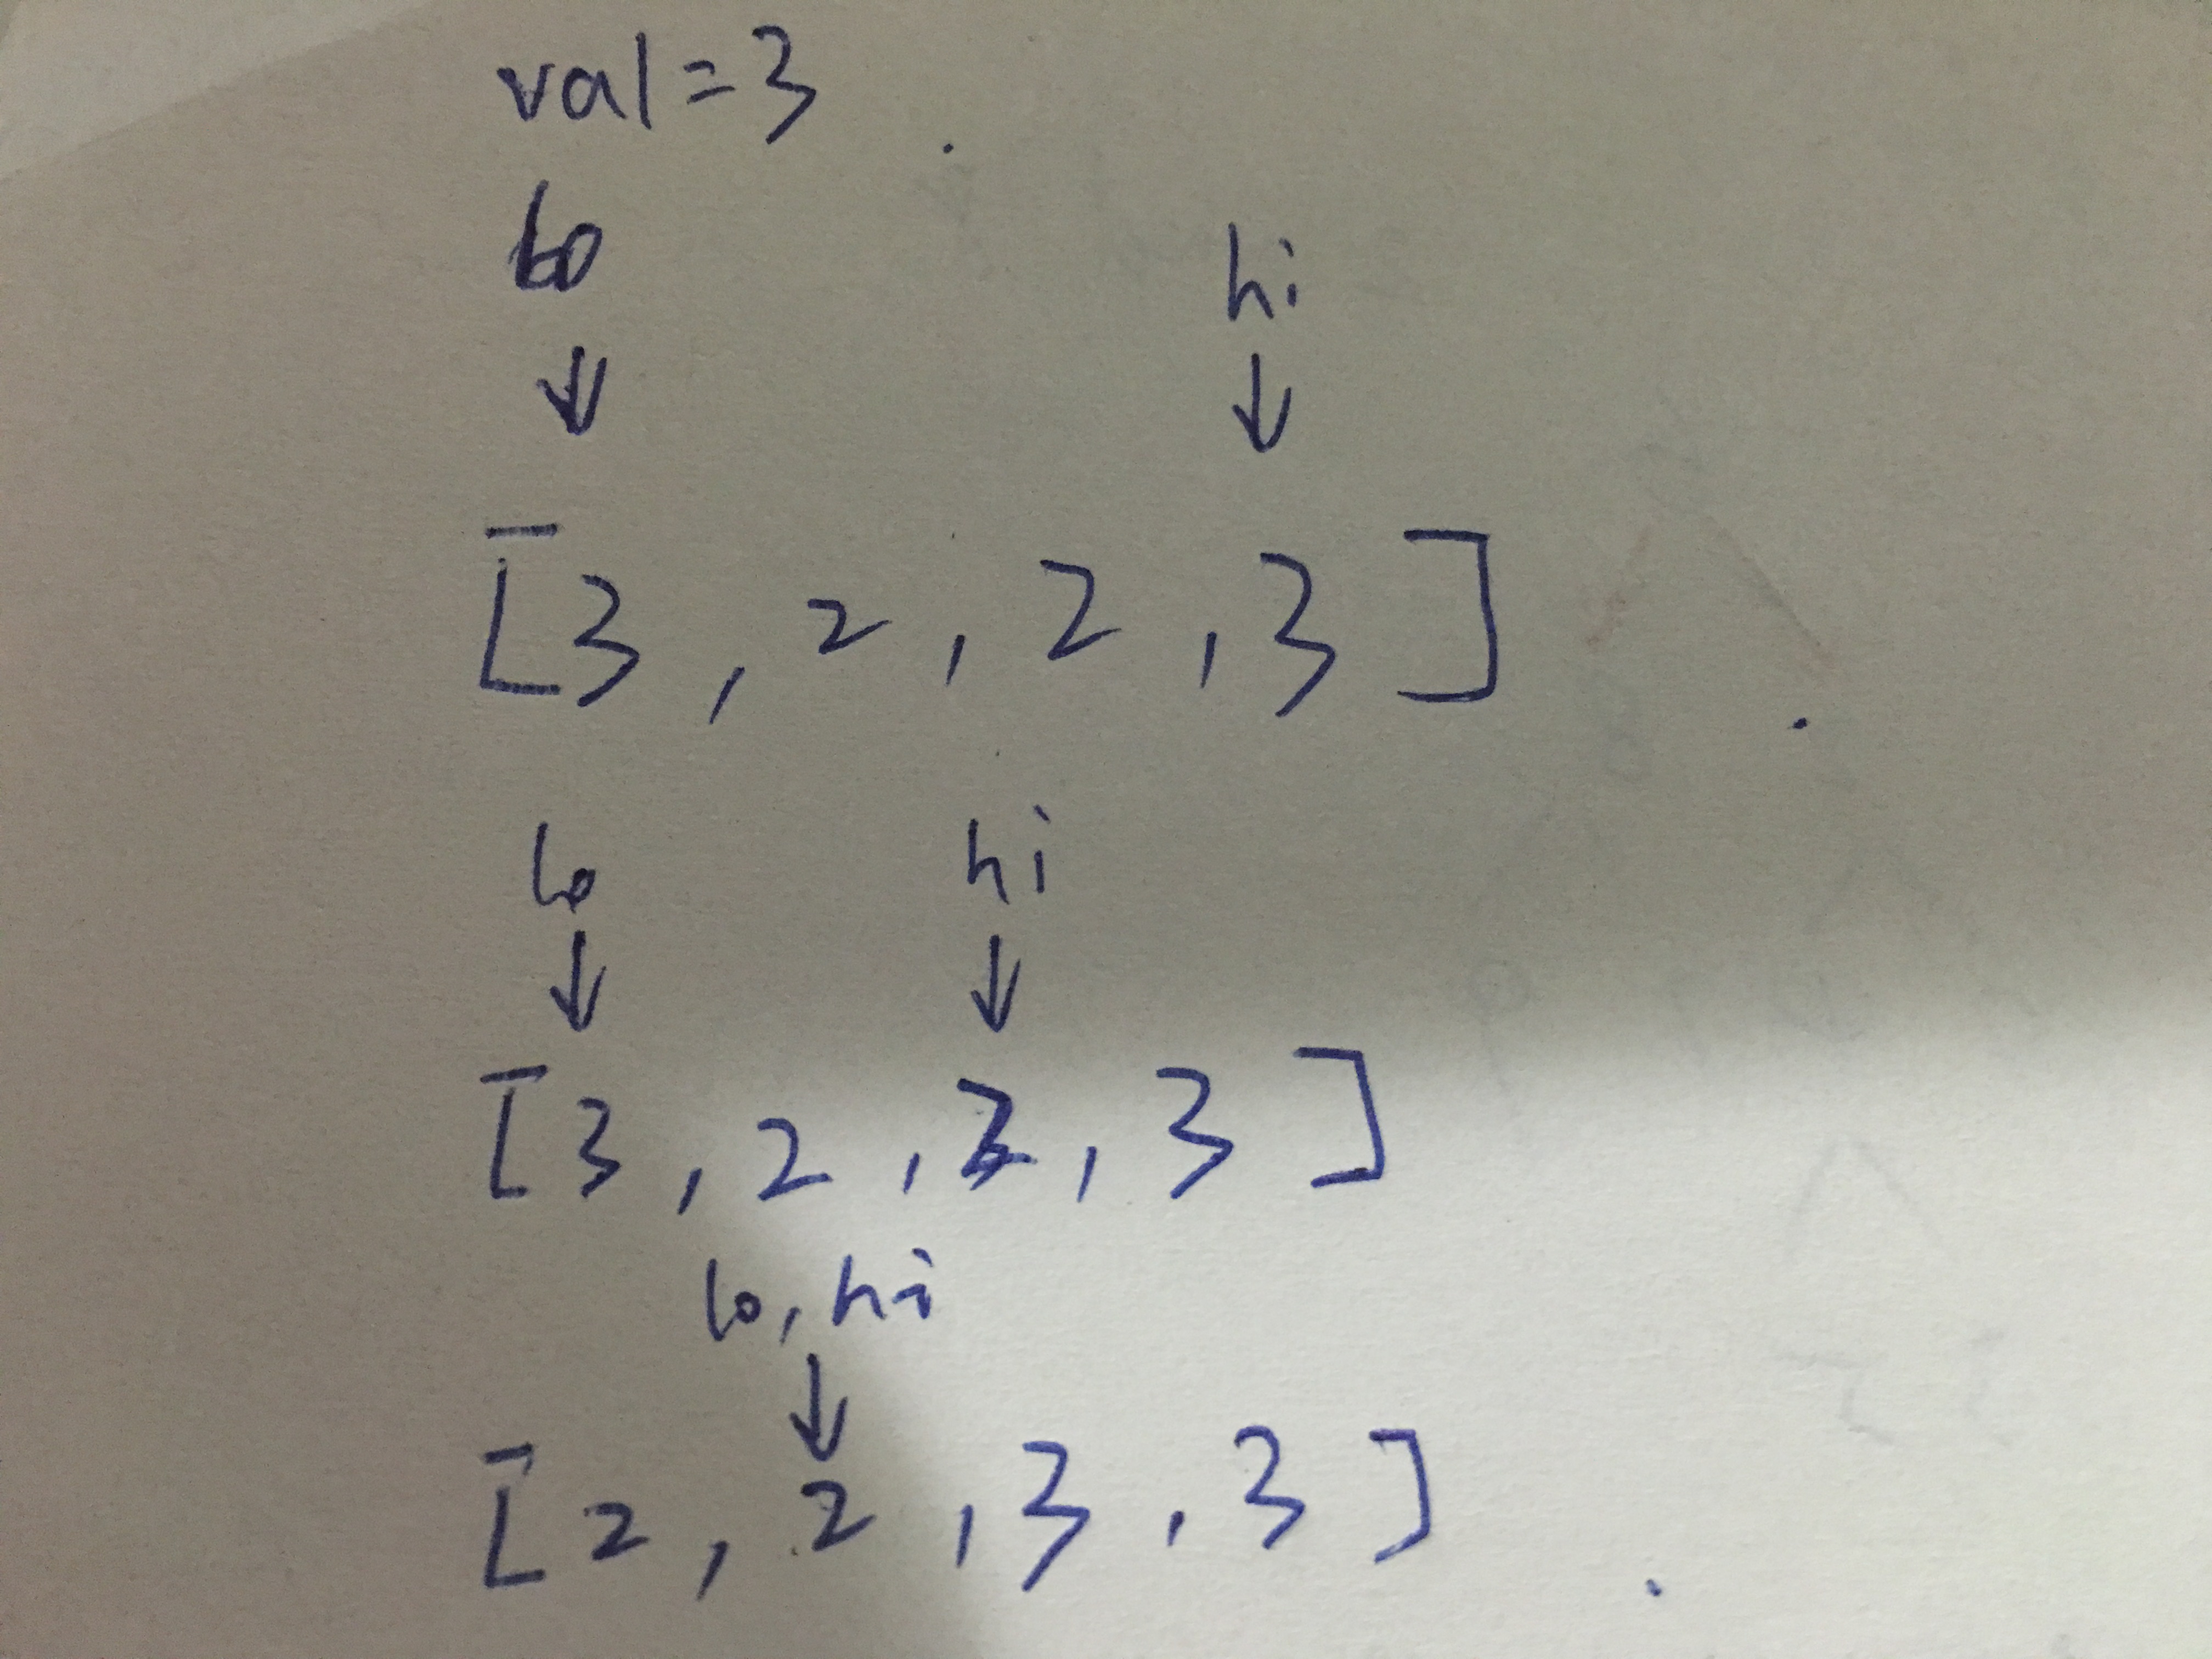 val = 3
lo hi
↓ ↓
[3, 2, 2, 3]
lo hi
↓ ↓
[3, 2, 2, 3]
lo, hi
↓
[2, 2, 3, 3]